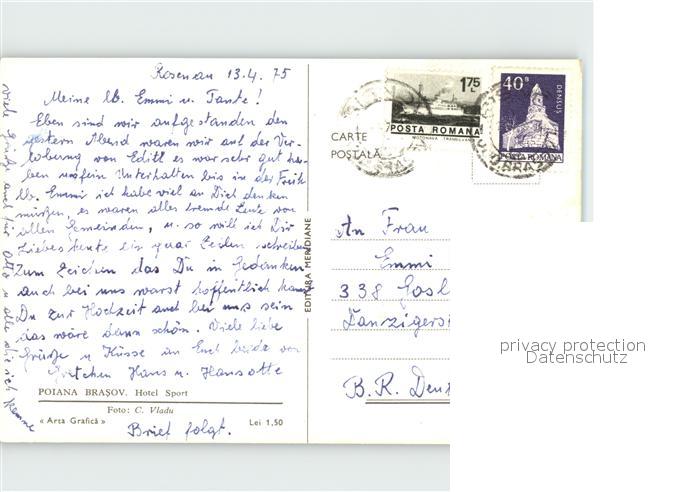 Rosenau 13.4.75
Meine lb. Emmi u. Tante!
Eben sind wir aufgestanden den
gestern Abend waren wir auf der Ver-
lobung von Edith es war sehr gut ha-
ben uns fein Unterhalten bis in der Früh
lb. Emmi ich habe viel an Dich denken
müssen, es waren alles fremde Leute von
allen Gemeinden, u. so will ich Dir
Liebes heute ein paar Zeilen schreiben
Zum Zeichen das Du in Gedanken
auch bei uns warst hoffentlich kannst
Du zur Hochzeit auch bei uns sein
das wäre dann schön. Viele liebe
Grüsse u Küsse an Euch beide von
Gretchen Hans u. Hansotte
viele Grüsse auch für Otto u alle die ich kenne
POIANA BRAȘOV. Hotel Sport
Foto: C. Vladu
« Arta Grafică » Lei 1,50
Brief folgt.
EDITURA MERIDIANE
CARTE
POȘTALĂ
1,75
POSTA ROMANA
MOTONAVA TRANSILVANIA
40 B
DENSUȘ
POSTA ROMANA
An Frau
Emmi
338 Gosl
Danzigers
B.R. Deu
privacy protection
Datenschutz